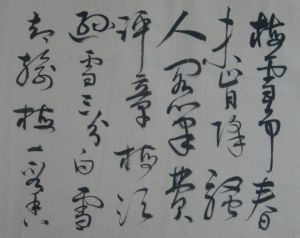 梅雪争春
未肯降骚
人阁笔费
评章梅须
逊雪三分白雪
却输梅一段香